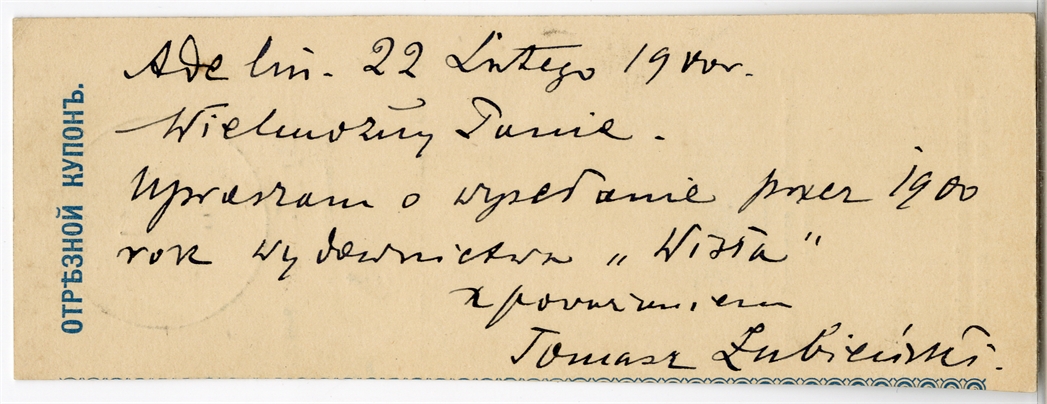 ОТРѢЗНОЙ КУПОНЪ.
Adelin. 22 Lutego 1900r.
Wielmożny Panie.
Upraszam o wysełanie przez 1900
rok wydawnictwa „Wisła”
z poważaniem
Tomasz Łubieński.